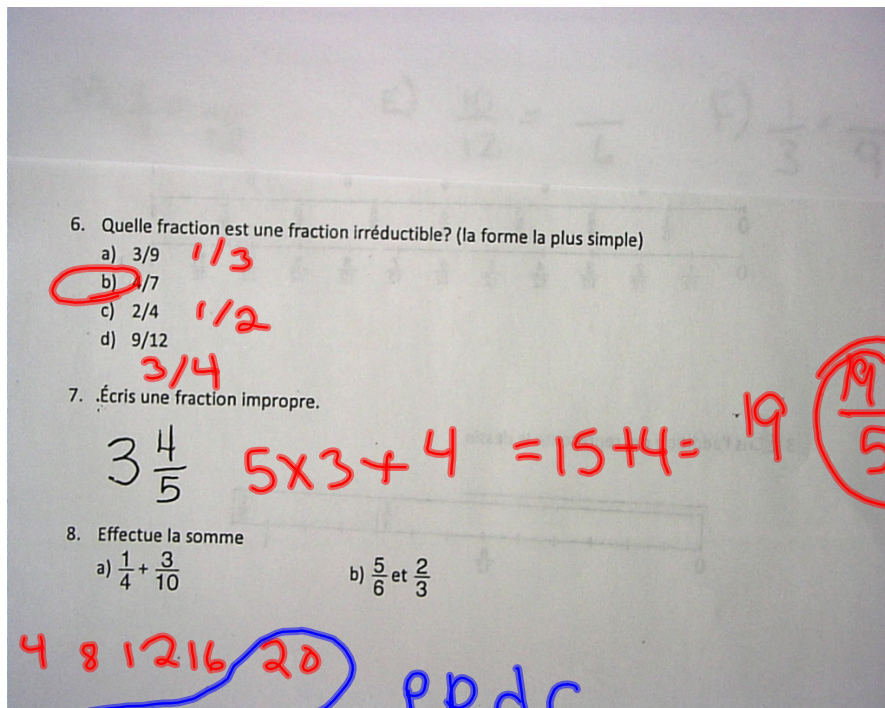 E) 10/12 = /6 F) 1/3 . /9
6. Quelle fraction est une fraction irréductible? (la forme la plus simple)
a) 3/9 1/3
b) 4/7
c) 2/4 1/2
d) 9/12
3/4
7. .Écris une fraction impropre.
3 4/5 5x3+4 =15+4= 19 19/5
8. Effectue la somme
a) 1/4 + 3/10 b) 5/6 et 2/3
4 8 12 16 20 ppdc